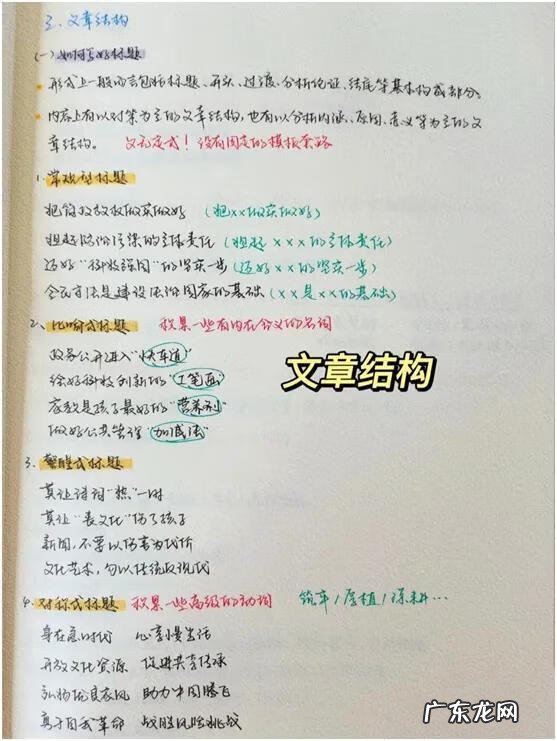 三、文章结构
(一) 如何写好标题
· 形式上一般而言包括标题、开头、过渡、分析论证、结尾等基本构成部分。
· 内容上有以对策为主的文章结构,也有以分析内涵、原因、意义等为主的文
章结构。 文无定式!没有固定的模板套路
1. 常规型标题
把简政放权做实做好 (把××做实做好)
担起防治污染的主体责任 (担起×××的主体责任)
迈好“科技强国”的坚实一步 (迈好××的坚实一步)
全民守法是建设法治国家的基础 (××是××的基础)
2. 比喻式标题 积累一些有内在含义的名词
政务公开进入“快车道”
绘好科技创新的“工笔画”
文章结构
家教是孩子最好的“营养剂”
做好公共管理“加减法”
3. 警醒式标题
莫让诗词“热”一时
莫让“丧文化”伤了孩子
新闻,不要以伤害为代价
文化艺术,勿以传统反现代
4. 对称式标题 积累一些高级的动词 统筹/厚植/深耕…
身在急时代 心享慢生活
开放文化资源 促进共享传承
弘扬优良家风 助力中国腾飞
勇于自我革命 战胜风险挑战
广东龙网